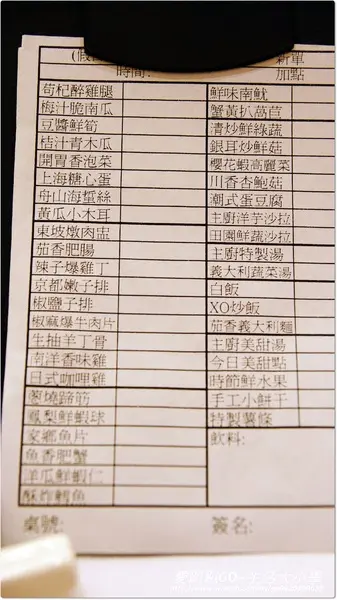 (假
新單
時間:
加點
荀杞醉雞腿
梅汁脆南瓜
豆醬鮮筍
桔汁青木瓜
開胃香泡菜
上海糖心蛋
舟山海蜇絲
黃瓜小木耳
東坡燉肉盅
茄香肥腸
辣子爆雞丁
京都嫩子排
椒鹽子排
椒麻爆牛肉片
生抽羊丁骨
南洋香味雞
日式咖哩雞
蔥燒蹄筋
鳳梨鮮蝦球
家鄉魚片
魚香肥蟹
洋瓜鮮蝦仁
酥炸鱈魚
桌號:
鮮味南魷
蟹黃扒萵苣
清炒鮮綠蔬
銀耳炒鮮菇
櫻花蝦高麗菜
川香杏鮑菇
潮式蛋豆腐
主廚洋芋沙拉
田園鮮蔬沙拉
主廚特製湯
義大利蔬菜湯
白飯
XO炒飯
茄香義大利麵
主廚美甜湯
今日美甜點
時節鮮水果
手工小餅干
特製薯條
飲料:
簽名: